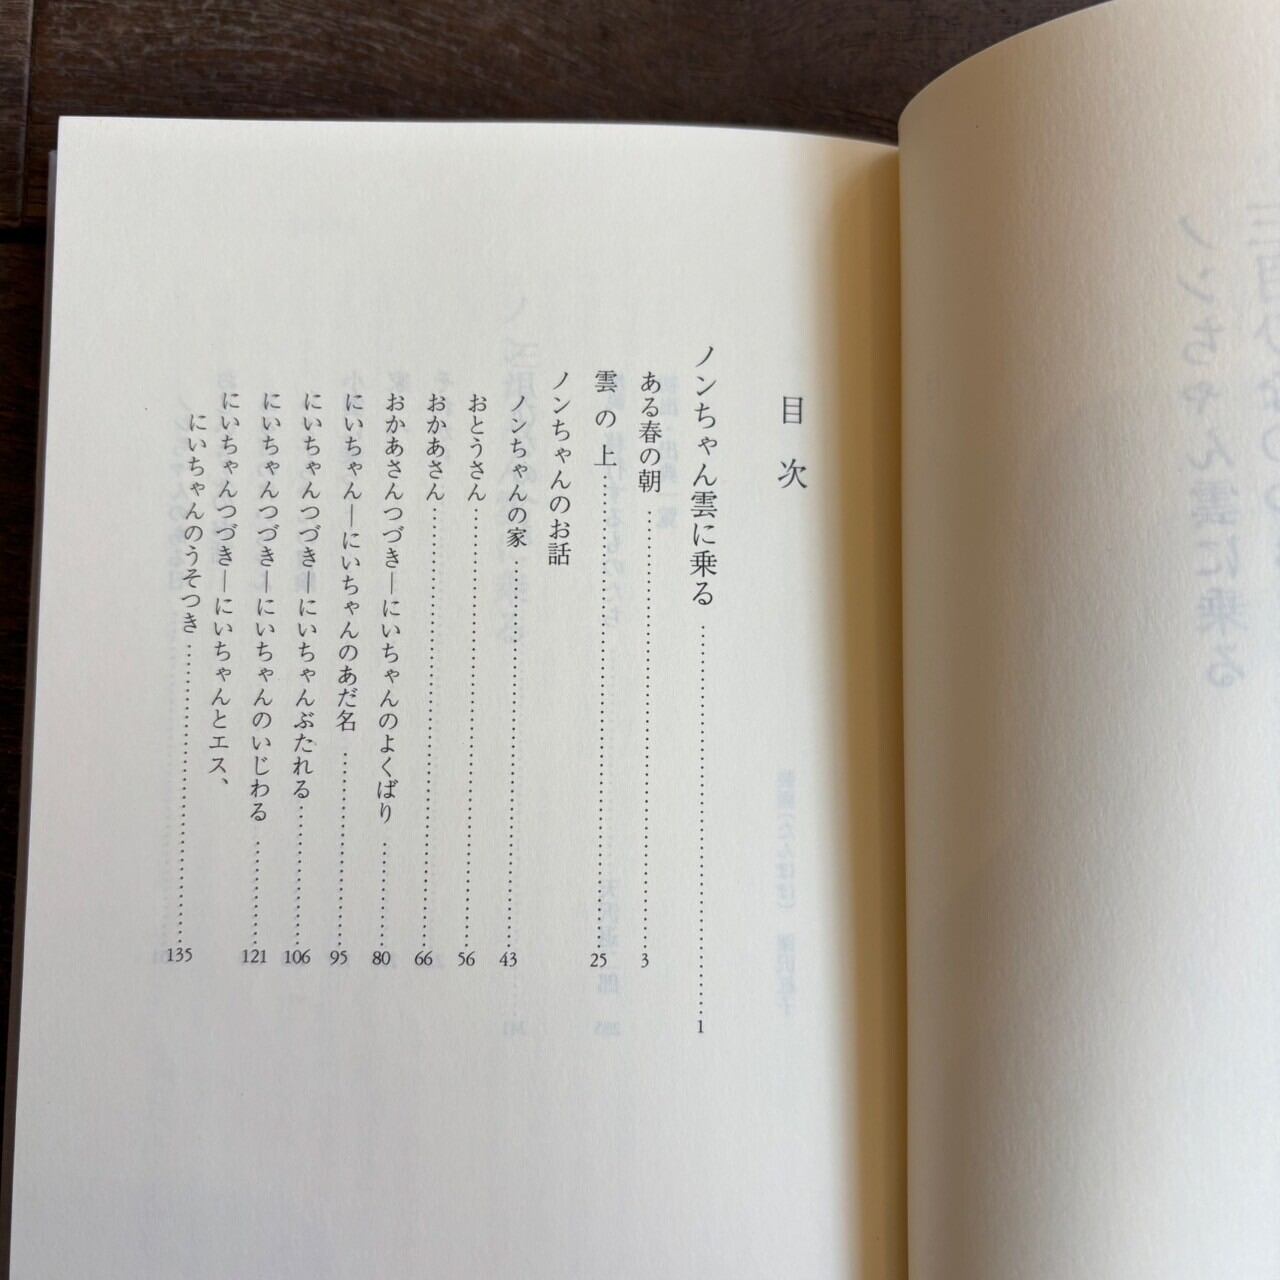 目次
ノンちゃん雲に乗る……………………1
ある春の朝……………………3
雲の上……………………25
ノンちゃんのお話
ノンちゃんの家……………………43
おとうさん……………………56
おかあさん……………………66
おかあさんつづき―にいちゃんのよくばり…………80
にいちゃん―にいちゃんのあだ名……………95
にいちゃんつづき―にいちゃんぶたれる…………106
にいちゃんつづき―にいちゃんのいじわる…………121
にいちゃんつづき―にいちゃんとエス、
にいちゃんのうそつき……………………135